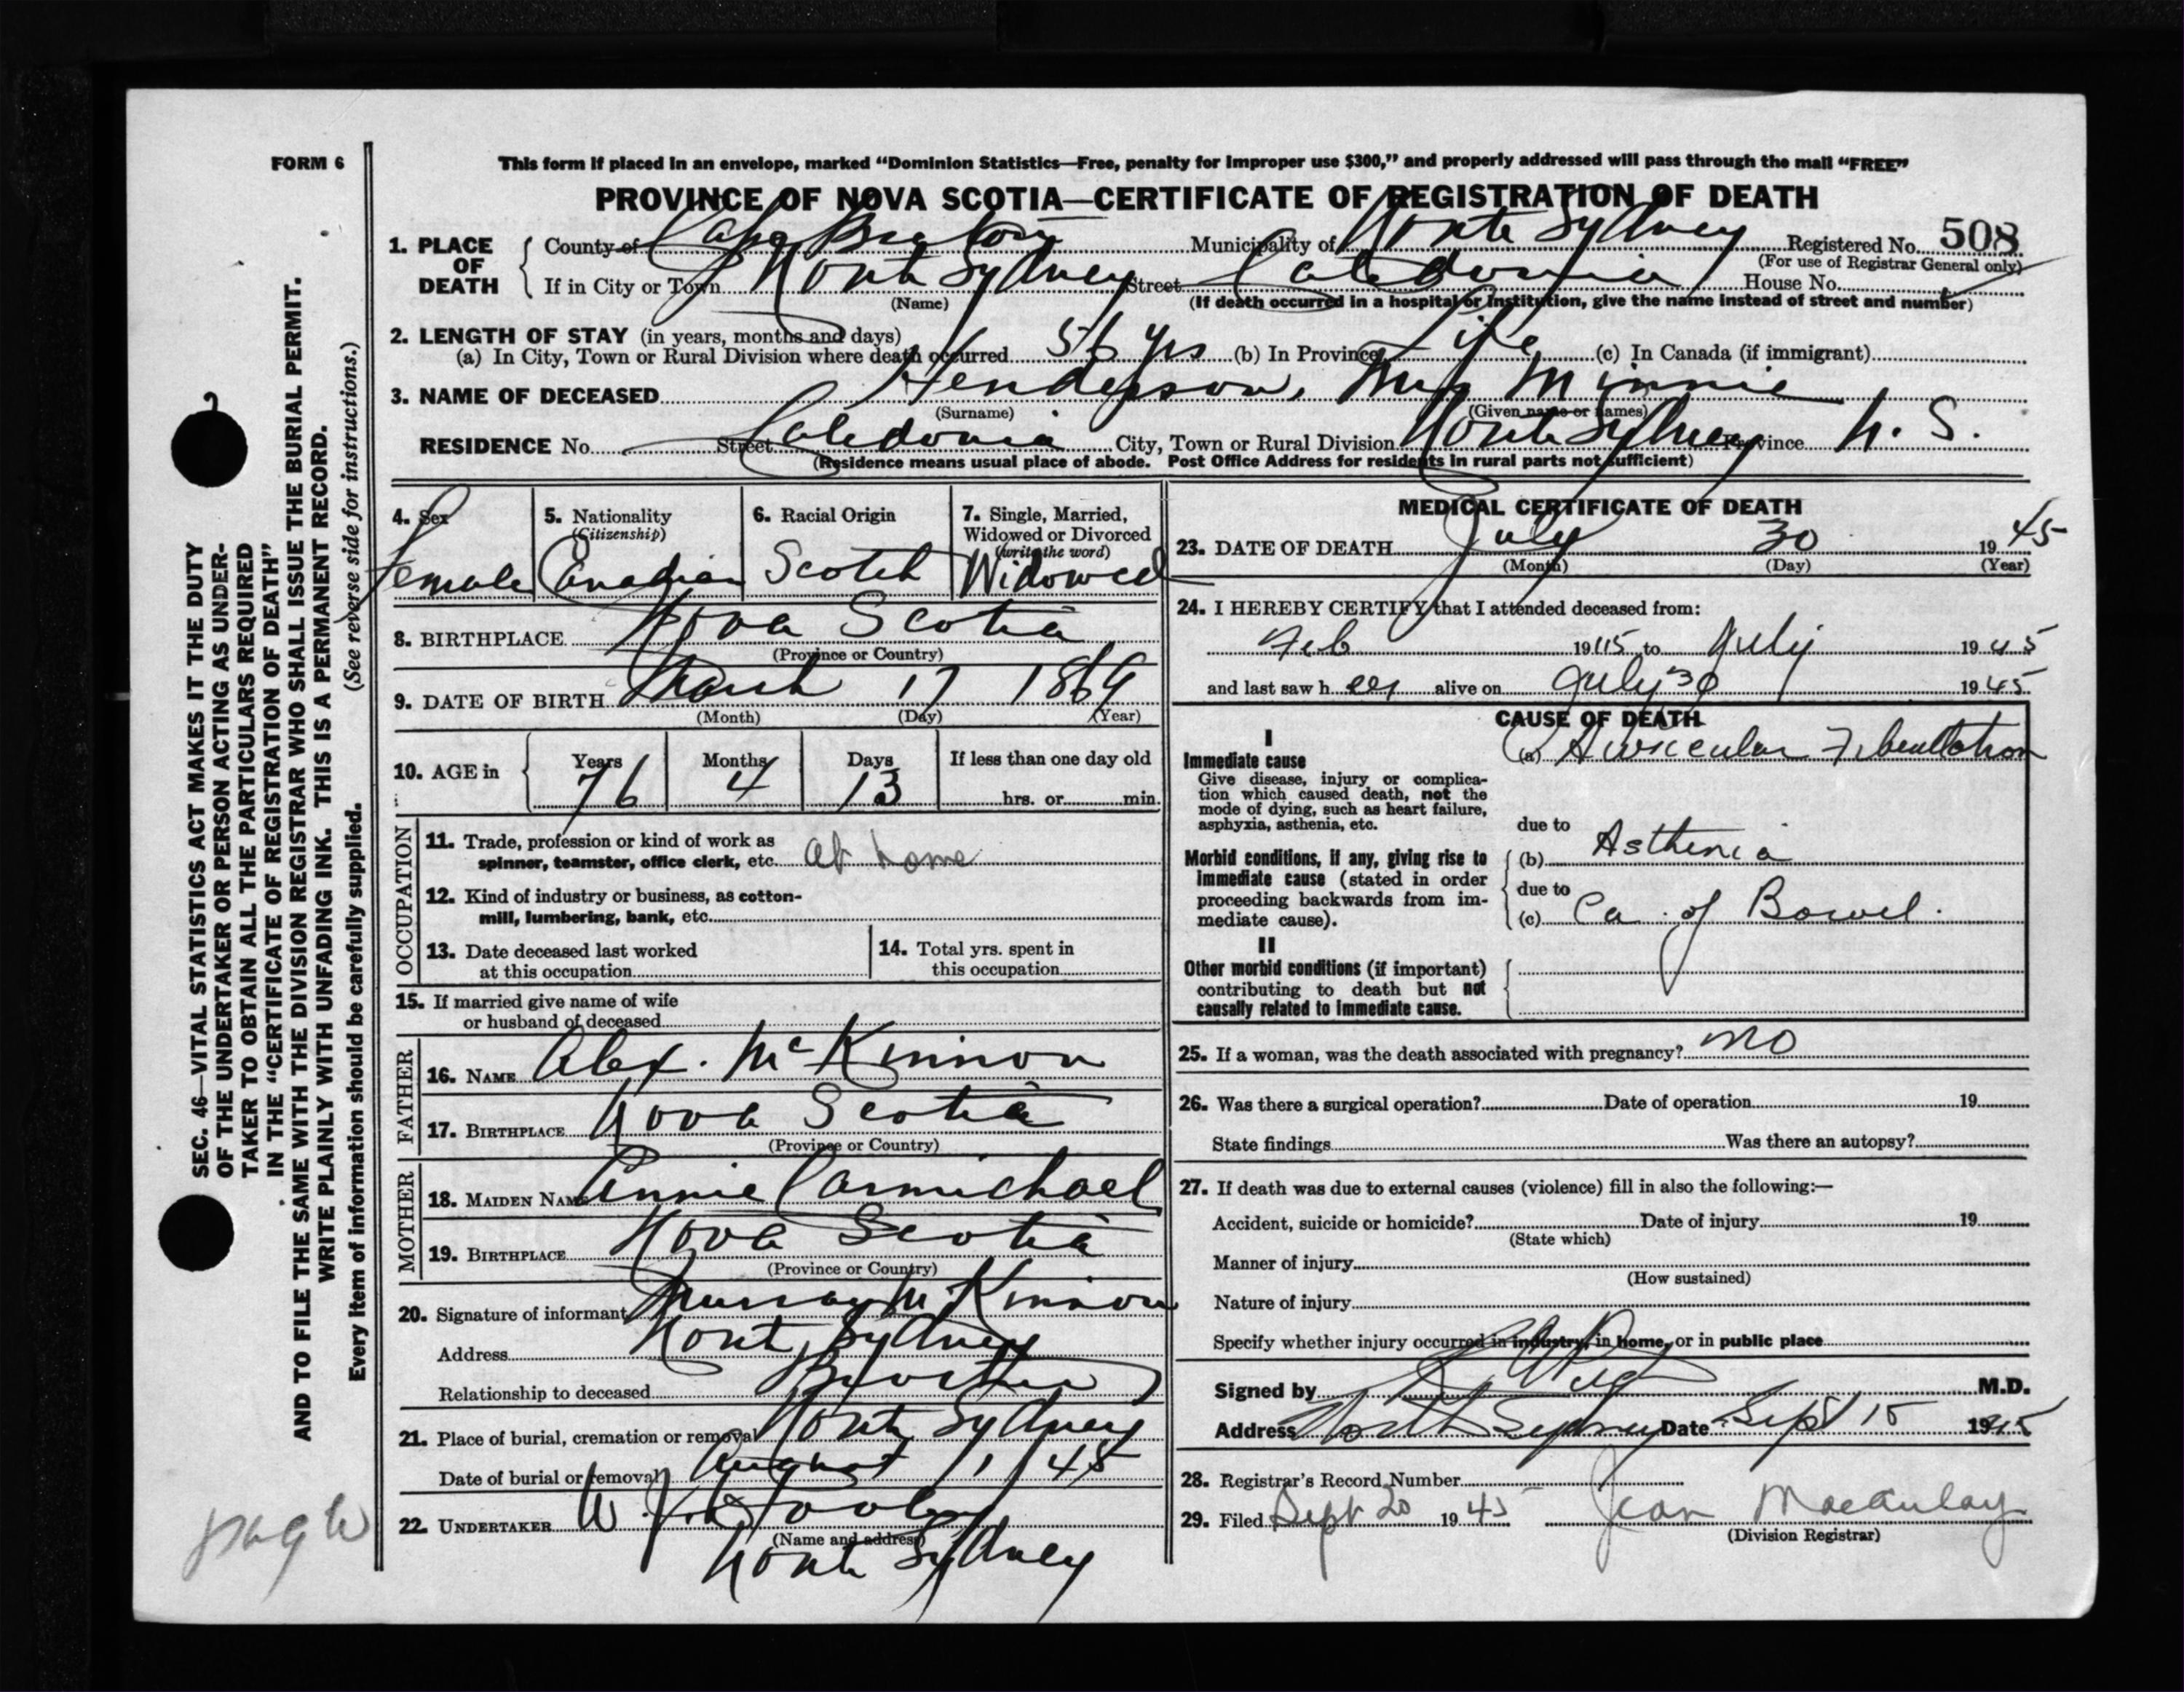 FORM 6
This form if placed in an envelope, marked “Dominion Statistics—Free, penalty for improper use $300,” and properly addressed will pass through the mail “FREE”
PROVINCE OF NOVA SCOTIA—CERTIFICATE OF REGISTRATION OF DEATH
1. PLACE OF DEATH
County of Cape Breton Municipality of North Sydney Registered No. 508
(For use of Registrar General only)
If in City or Town North Sydney Street Caledonia House No.
(Name) (If death occurred in a hospital or institution, give the name instead of street and number)
2. LENGTH OF STAY (in years, months and days)
(a) In City, Town or Rural Division where death occurred 56 yrs (b) In Province Life (c) In Canada (if immigrant)
3. NAME OF DECEASED Henderson, Mrs Minnie
(Surname) (Given name or names)
RESIDENCE No. Street Caledonia City, Town or Rural Division North Sydney Province N. S.
(Residence means usual place of abode. Post Office Address for residents in rural parts not sufficient)
4. Sex
Female
5. Nationality
(Citizenship)
Canadian
6. Racial Origin
Scotch
7. Single, Married,
Widowed or Divorced
(write the word)
Widowed
8. BIRTHPLACE Nova Scotia
(Province or Country)
9. DATE OF BIRTH March 17 1869
(Month) (Day) (Year)
10. AGE in
Years Months Days If less than one day old
76 4 13 hrs. or min.
OCCUPATION
11. Trade, profession or kind of work as
spinner, teamster, office clerk, etc. at home
12. Kind of industry or business, as cotton-
mill, lumbering, bank, etc.
13. Date deceased last worked
at this occupation
14. Total yrs. spent in
this occupation
15. If married give name of wife
or husband of deceased
FATHER
16. NAME Alex. McKinnon
17. BIRTHPLACE Nova Scotia
(Province or Country)
MOTHER
18. MAIDEN NAME Annie Carmichael
19. BIRTHPLACE Nova Scotia
(Province or Country)
20. Signature of informant Murray McKinnon
Address North Sydney
Relationship to deceased Brother
21. Place of burial, cremation or removal North Sydney
Date of burial or removal August 1 / 45
22. UNDERTAKER W. Dooley
(Name and address)
North Sydney
MEDICAL CERTIFICATE OF DEATH
23. DATE OF DEATH July 30 1945
(Month) (Day) (Year)
24. I HEREBY CERTIFY that I attended deceased from:
Feb 1945 to July 1945
and last saw her alive on July 30 1945
CAUSE OF DEATH
I
Immediate cause
Give disease, injury or complica-
tion which caused death, not the
mode of dying, such as heart failure,
asphyxia, asthenia, etc.
(a) Auricular Fibrillation
due to
Morbid conditions, if any, giving rise to
immediate cause (stated in order
proceeding backwards from im-
mediate cause).
(b) Asthenia
due to
(c) Ca. of Bowel.
II
Other morbid conditions (if important)
contributing to death but not
causally related to immediate cause.
25. If a woman, was the death associated with pregnancy? no
26. Was there a surgical operation? Date of operation 19
State findings Was there an autopsy?
27. If death was due to external causes (violence) fill in also the following:—
Accident, suicide or homicide? Date of injury 19
(State which)
Manner of injury
(How sustained)
Nature of injury
Specify whether injury occurred in industry, in home, or in public place
Signed by M.D.
Address North Sydney Date Sept 15 1945
28. Registrar's Record Number
29. Filed Sept 20 1945 Jean Macaulay
(Division Registrar)
SEC. 46—VITAL STATISTICS ACT MAKES IT THE DUTY
OF THE UNDERTAKER OR PERSON ACTING AS UNDER-
TAKER TO OBTAIN ALL THE PARTICULARS REQUIRED
IN THE “CERTIFICATE OF REGISTRATION OF DEATH”
AND TO FILE THE SAME WITH THE DIVISION REGISTRAR WHO SHALL ISSUE THE BURIAL PERMIT.
WRITE PLAINLY WITH UNFADING INK. THIS IS A PERMANENT RECORD.
Every item of information should be carefully supplied. (See reverse side for instructions.)